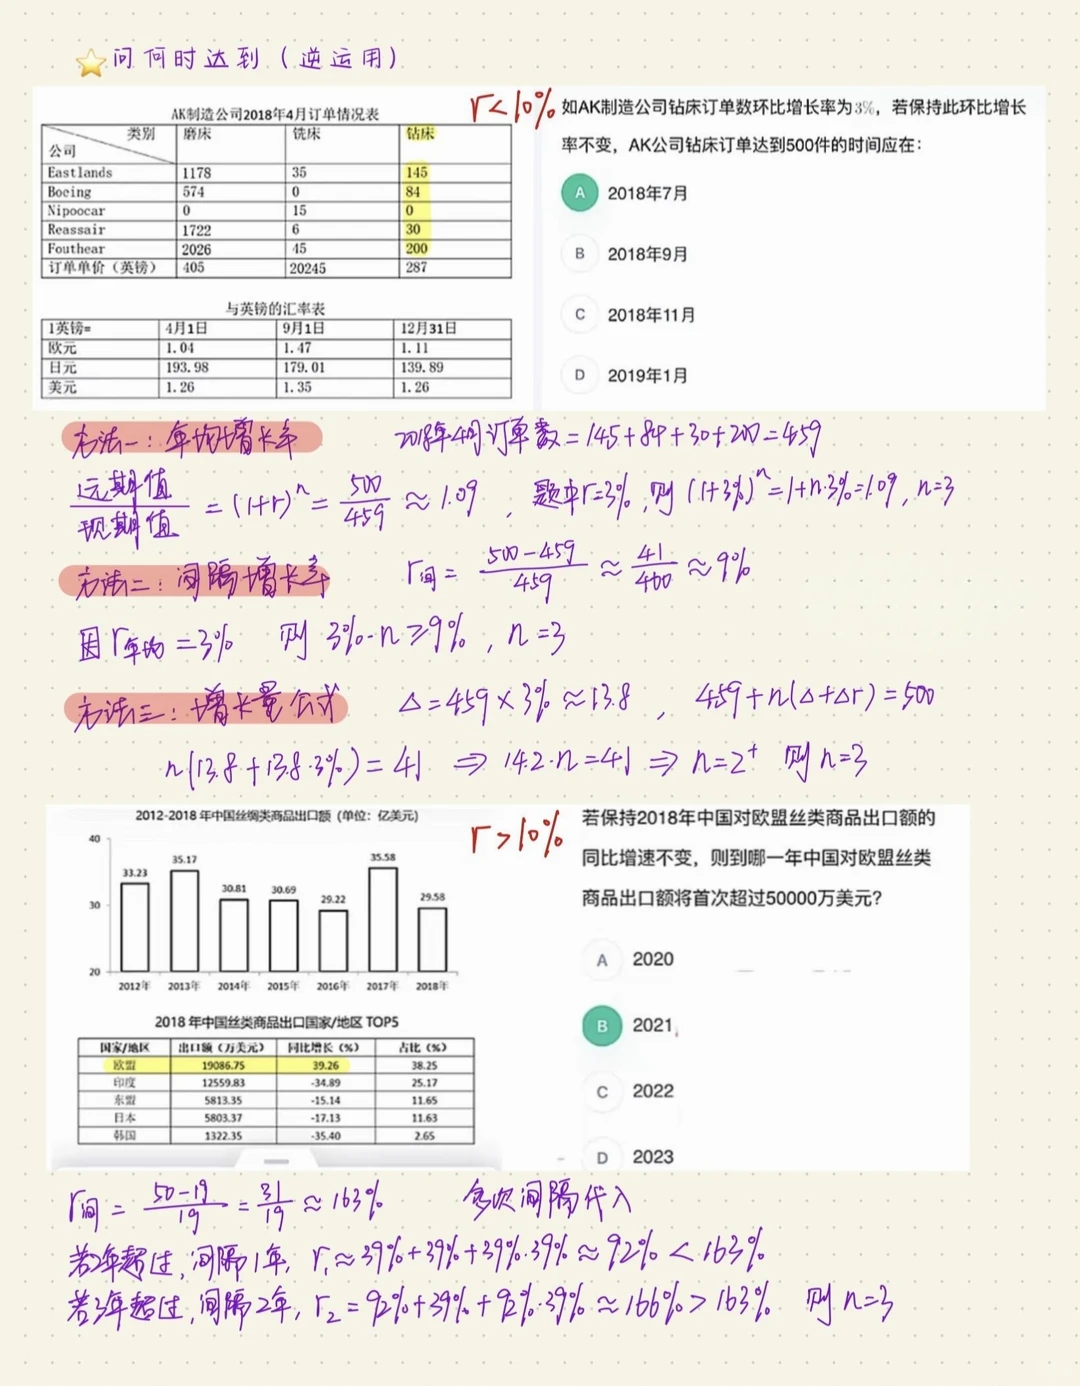 ⭐问何时达到(逆运用)
AK制造公司2018年4月订单情况表
类别 磨床 铣床 钻床
公司
Eastlands 1178 35 145
Boeing 574 0 84
Nipoocar 0 15 0
Reassair 1722 6 30
Fouthear 2026 45 200
订单单价(英镑) 405 20245 287
与英镑的汇率表
1英镑= 4月1日 9月1日 12月31日
欧元 1.04 1.47 1.11
日元 193.98 179.01 139.89
美元 1.26 1.35 1.26
r<10%
如AK制造公司钻床订单数环比增长率为3%,若保持此环比增长
率不变,AK公司钻床订单达到500件的时间应在:
A 2018年7月
B 2018年9月
C 2018年11月
D 2019年1月
方法一:年均增长率 2018年4月订单数=145+84+30+200=459
远期值/现期值=(1+r)ⁿ=500/459≈1.09,题中r=3%,则(1+3%)ⁿ=1+n·3%=1.09,n=3
方法二:间隔增长率 r间=500-459/459≈41/460≈9%
因r年均=3% 则3%·n≥9%,n=3
方法三:增长量公式 Δ=459×3%≈13.8,459+n(Δ+Δr)=500
n(13.8+13.8·3%)=41⇒14.2·n=41⇒n=2⁺ 则n=3
2012-2018年中国丝绸类商品出口额(单位:亿美元)
40
30
20
33.23 35.17 30.81 30.69 29.22 35.58 29.58
2012年 2013年 2014年 2015年 2016年 2017年 2018年
2018年中国丝类商品出口国家/地区 TOP5
国家/地区 出口额(万美元) 同比增长(%) 占比(%)
欧盟 19086.75 39.26 38.25
印度 12559.83 -34.89 25.17
东盟 5813.35 -15.14 11.65
日本 5803.37 -17.13 11.63
韩国 1322.35 -35.40 2.65
r>10%
若保持2018年中国对欧盟丝类商品出口额的
同比增速不变,则到哪一年中国对欧盟丝类
商品出口额将首次超过50000万美元?
A 2020
B 2021
C 2022
D 2023
r间=50-19/19=31/19≈163% 多次间隔代入
若2年超过,间隔1年,r₁≈39%+39%+39%·39%≈92%<163%
若3年超过,间隔2年,r₂=92%+39%+92%·39%≈166%>163% 则n=3